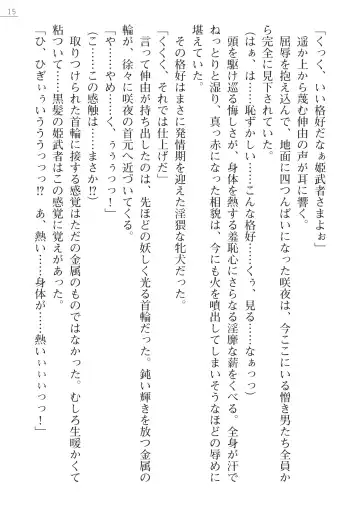 15
「くっく、いい格好だなぁ姫武者さまよぉ」
遥か上から蔑む伸由の声が耳に響く。
屈辱を抱え込んで、地面に四つんばいになった咲夜は、今ここにいる憎き男たち全員か
ら完全に見下されていた。
（はぁ、は……恥ずかしい……こんな格好……くぅ、見る……なぁっっ）
頭を駆け巡る悔しさが、身体を熱する羞恥心にさらなる淫靡な薪をくべる。全身が汗で
ねっとりと湿り、真っ赤になった相貌は、今にも火を噴出してしまいそうなほどの辱めに
堪えていた。
その格好はまさに発情期を迎えた淫猥な牝犬だった。
「くくく、それでは仕上げだ」
言って伸由が持ち出したのは、先ほどの妖しく光る首輪だった。鈍い輝きを放つ金属の
輪が、徐々に咲夜の首元へ近づいてくる。
「や……やめ……く、ぅぅうっっ！」
（こ……この感触は……まさか!?）
取りつけられた首輪に接する感覚はただの金属のものではなかった。むしろ生暖かくて
粘ついて……黒髪の姫武者はこの感覚に覚えがあった。
「ひ、ひぎぃぅいうううっっっ!?　あ、熱い……身体が……熱いぃぃいっっ！」